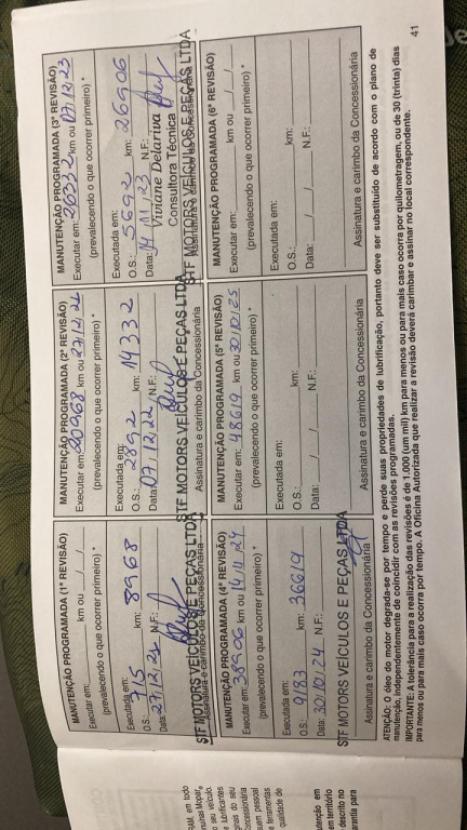 MANUTENÇÃO PROGRAMADA (1ª REVISÃO)
Executar em: km ou / /
(prevalecendo o que ocorrer primeiro) *
Executada em:
O.S.: 715 km: 8968
Data: 27/12/21 N.F.:
STF MOTORS VEÍCULOS E PEÇAS LTDA
Assinatura e carimbo da Concessionária
MANUTENÇÃO PROGRAMADA (2ª REVISÃO)
Executar em: 20968 km ou 27/12/22
(prevalecendo o que ocorrer primeiro) *
Executada em:
O.S.: 2892 km: 14332
Data: 07/12/22 N.F.:
STF MOTORS VEÍCULOS E PEÇAS LTDA
Assinatura e carimbo da Concessionária
MANUTENÇÃO PROGRAMADA (3ª REVISÃO)
Executar em: 26332 km ou 07/12/23
(prevalecendo o que ocorrer primeiro) *
Executada em:
O.S.: 5692 km: 26906
Data: 14/11/23 N.F.:
Viviane Delariva
Consultora Técnica
STF MOTORS VEÍCULOS E PEÇAS LTDA
Assinatura e carimbo da Concessionária
MANUTENÇÃO PROGRAMADA (4ª REVISÃO)
Executar em: 38906 km ou 14/11/24
(prevalecendo o que ocorrer primeiro) *
Executada em:
O.S.: 9183 km: 36619
Data: 30/10/24 N.F.:
STF MOTORS VEÍCULOS E PEÇAS LTDA
Assinatura e carimbo da Concessionária
MANUTENÇÃO PROGRAMADA (5ª REVISÃO)
Executar em: 48619 km ou 30/10/25
(prevalecendo o que ocorrer primeiro) *
Executada em:
O.S.: km:
Data: / / N.F.:
Assinatura e carimbo da Concessionária
MANUTENÇÃO PROGRAMADA (6ª REVISÃO)
Executar em: km ou / /
(prevalecendo o que ocorrer primeiro) *
Executada em:
O.S.: km:
Data: / / N.F.:
Assinatura e carimbo da Concessionária
ATENÇÃO: O óleo do motor degrada-se por tempo e perde suas propriedades de lubrificação, portanto deve ser substituído de acordo com o plano de
manutenção, independentemente de coincidir com as revisões programadas.
IMPORTANTE: A tolerância para a realização das revisões é de 1.000 (um mil) km para menos ou para mais caso ocorra por quilometragem, ou de 30 (trinta) dias
para menos ou para mais caso ocorra por tempo. A Oficina Autorizada que realizar a revisão deverá carimbar e assinar no local correspondente.
41